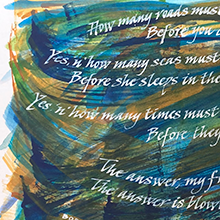 How many roads must
Before you
Yes, 'n' how many seas must
Before she sleeps in the
Yes, 'n' how many times must
Before they
The answer, my fr
The answer is blow